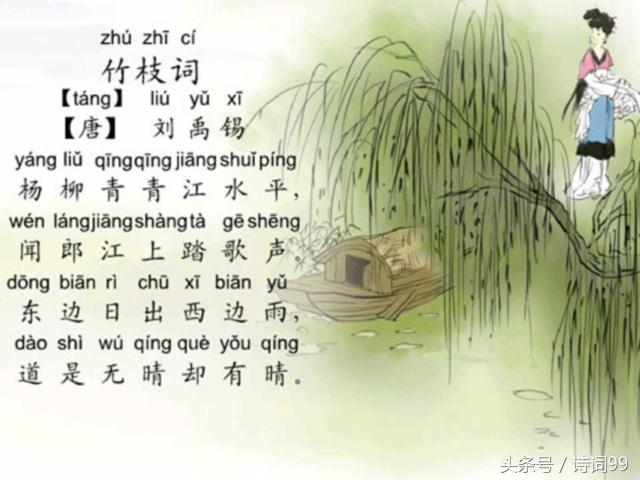 zhú zhī cí
竹枝词
【táng】 liú yǔ xī
【唐】 刘禹锡
yáng liǔ qīngqīng jiāng shuǐ píng
杨柳青青江水平，
wén láng jiāng shàng tà gē shēng
闻郎江上踏歌声。
dōng biān rì chū xī biān yǔ
东边日出西边雨，
dào shì wú qíng què yǒu qíng
道是无晴却有晴。
头条号 / 诗词99